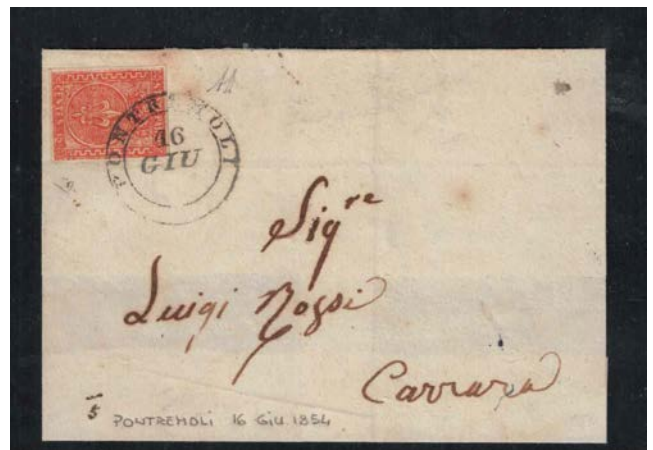 11
PONTREMOLI
16
GIU
Sig.re
Luigi Rossi
Carrara
5
PONTREMOLI 16 GIU 1854